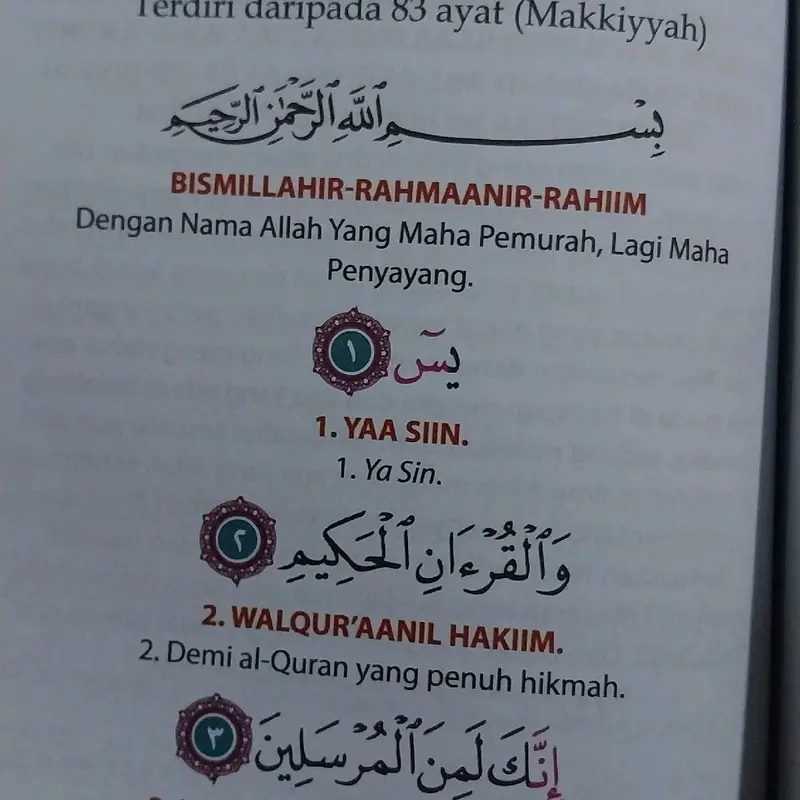 Terdiri daripada 83 ayat (Makkiyyah)
بِسْمِ ٱللَّهِ ٱلرَّحْمَٰنِ ٱلرَّحِيمِ
BISMILLAHIR-RAHMAANIR-RAHIIM
Dengan Nama Allah Yang Maha Pemurah, Lagi Maha
Penyayang.
يسٓ ١
1. YAA SIIN.
1. Ya Sin.
وَٱلْقُرْءَانِ ٱلْحَكِيمِ ٢
2. WALQUR’AANIL HAKIIM.
2. Demi al-Quran yang penuh hikmah.
إِنَّكَ لَمِنَ ٱلْمُرْسَلِينَ ٣